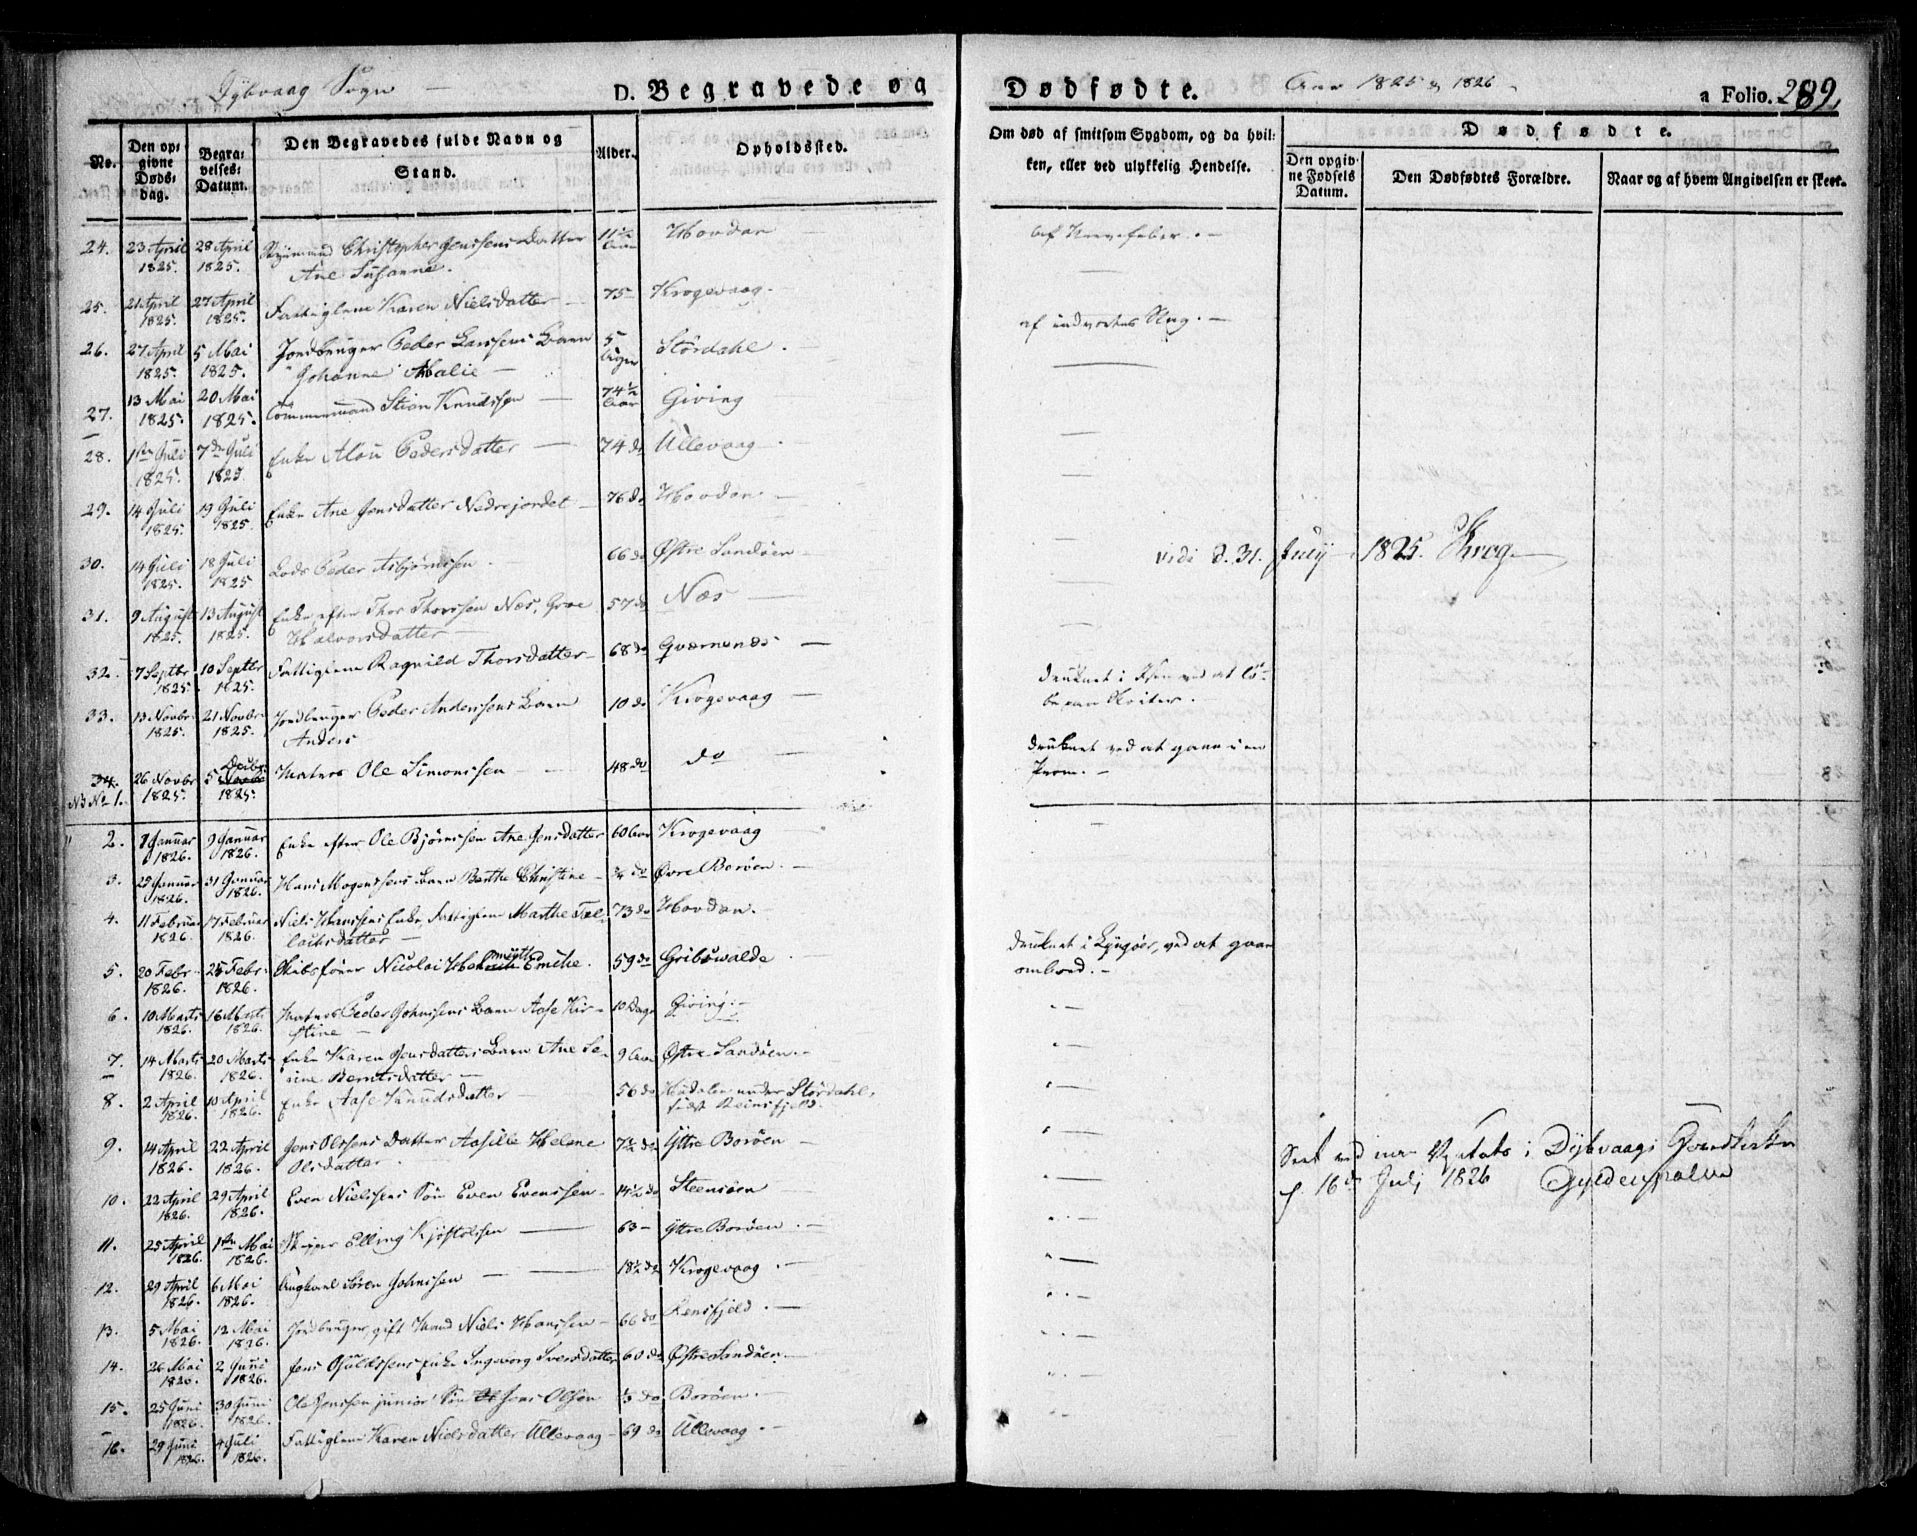 Dybvaag Sogn
D. Begravede og
Dødfødte.
Ano 1825 & 1826
a Folio. 289.
No.
Den op-
givne
Døds-
dag.
Begra-
velses-
Datum.
Den Begravedes fulde Navn og
Stand.
Alder.
Opholdssted.
Om død af smitsom Sygdom, og da hvil-
ken, eller ved ulykkelig Hendelse.
Dødfødte.
Den opgiv-
ne Fødsels
Datum.
Den Dødfødtes Forældre.
Naar og af hvem Angivelsen er skeet.
24. 23 April 28 April Christopher Jenssens Datter 11 1/2 Hovdan
1825. 1825. Ane Susanne. Aar
25. 21 April 27 April Fattiglem Karen Nielsdatter 75 Krogevaag
1825. 1825.
26. 27 April 5 Mai Jordbruger Peder Larssens Barn 5 Stördahl af indvortes Slag.
1825. 1825. Johanne Malie Uger
27. 13 Mai 20 Mai Stian Knudssen 74 1/2 Giving
1825. 1825. Aar
28. 1ste Juli 7de Juli Enke Alou Pedersdatter 74 do Ullevaag
1825. 1825.
29. 14 Juli 19 Juli Enke Ane Jensdatter Nedrejordet 76 do Hovdan
1825. 1825.
30. 14 Juli 18 Juli Lods Peder Asbjörnssen 66 do Østre Sandöen vidi d. 31. July 1825. Krog
1825. 1825
31. 9 August 13 August Enke efter Thor Thorssen Næs, Groe 57 do Næs
1825. 1825. Halvorsdatter
32. 7 Septbr 10 Septbr Fattiglem Ragnild Thorsdatter 68 do Qværnenæs
1825. 1825.
33. 13 Novbr 21 Novbr Jordbruger Peder Anderssens Barn 10 do Krogevaag druknet i Isen ved at lö-
1825. 1825. Anders be paa Skøiter.
34. 26 Novbr 5 Decbr Matros Ole Simonssen 48 do do druknet ved at gaae i en
NB No 1. 1825. 1825. Pram.
2. 8 Januar 9 Januar Enke efter Ole Bjørnssen Ane Jensdatter 60 Aar Krogevaag
1826. 1826.
3. 25 Januar 31 Januar Hans Mogenssens Barn Berthe Christine 3/4 do Øvre Boröen
1826. 1826.
4. 11 Februar 17 Februar Niels Hanssens Enke, Fattiglem Marthe Tal- 73 do Hovdan
1826. 1826. laksdatter
5. 20 Febr 25 Febr Skibsfører Nicolai Emche. 59 do Gribswalde druknet i Lyngöer, ved at gaae
1826. 1826. ombord.
6. 10 Marts 16 Marts Matros Peder Johnssens Barn Aase Kir- 10 Dage Giving
1826. 1826. stine
7. 14 Marts 20 Marts Enke Karen Jensdatters Barn Ane Se- 9 Aar Østre Sandöen
1826. 1826. rine Berntsdatter
8. 2 April 10 April Enke Aase Knudsdatter 56 do under Stördahl,
1826. 1826. født Reinsfjeld.
9. 14 April 22 April Jens Olssens Datter Aasille Helene 7 1/2 do Yttre Boröen
1826. 1826. Olsdatter
Seet ved min Visitats i Dybvaags Hovedkirke
d. 16de Julj 1826 Gyldenpalm
10. 22 April 29 April Even Nielssens Sön Even Evenssen 14 1/2 do Steensöen
1826. 1826.
11. 25 April 1ste Mai Skipper Elling Kjöstolssen 63 Yttre Boröen
1826. 1826.
12. 29 April 6 Mai Ungkarl Sören Johnssen 18 1/2 do Krogevaag
1826. 1826.
13. 5 Mai 12 Mai Jordbruger, gift Mand Niels Hanssen 66 do Rensfjeld
1826. 1826.
14. 26 Mai 2 Juni Jens Osuldssens Enke Ingeborg Iversdatter 60 do Østre Sandöen
1826. 1826.
15. 25 Juni 30 Juni Ole Jenssen junior Sön Jens Olssön 1/3 do Boröen
1826. 1826.
16. 29 Juni 4 Juli Fattiglem Karen Nielsdatter Ullevaag 69 do Ullevaag
1826. 1826.